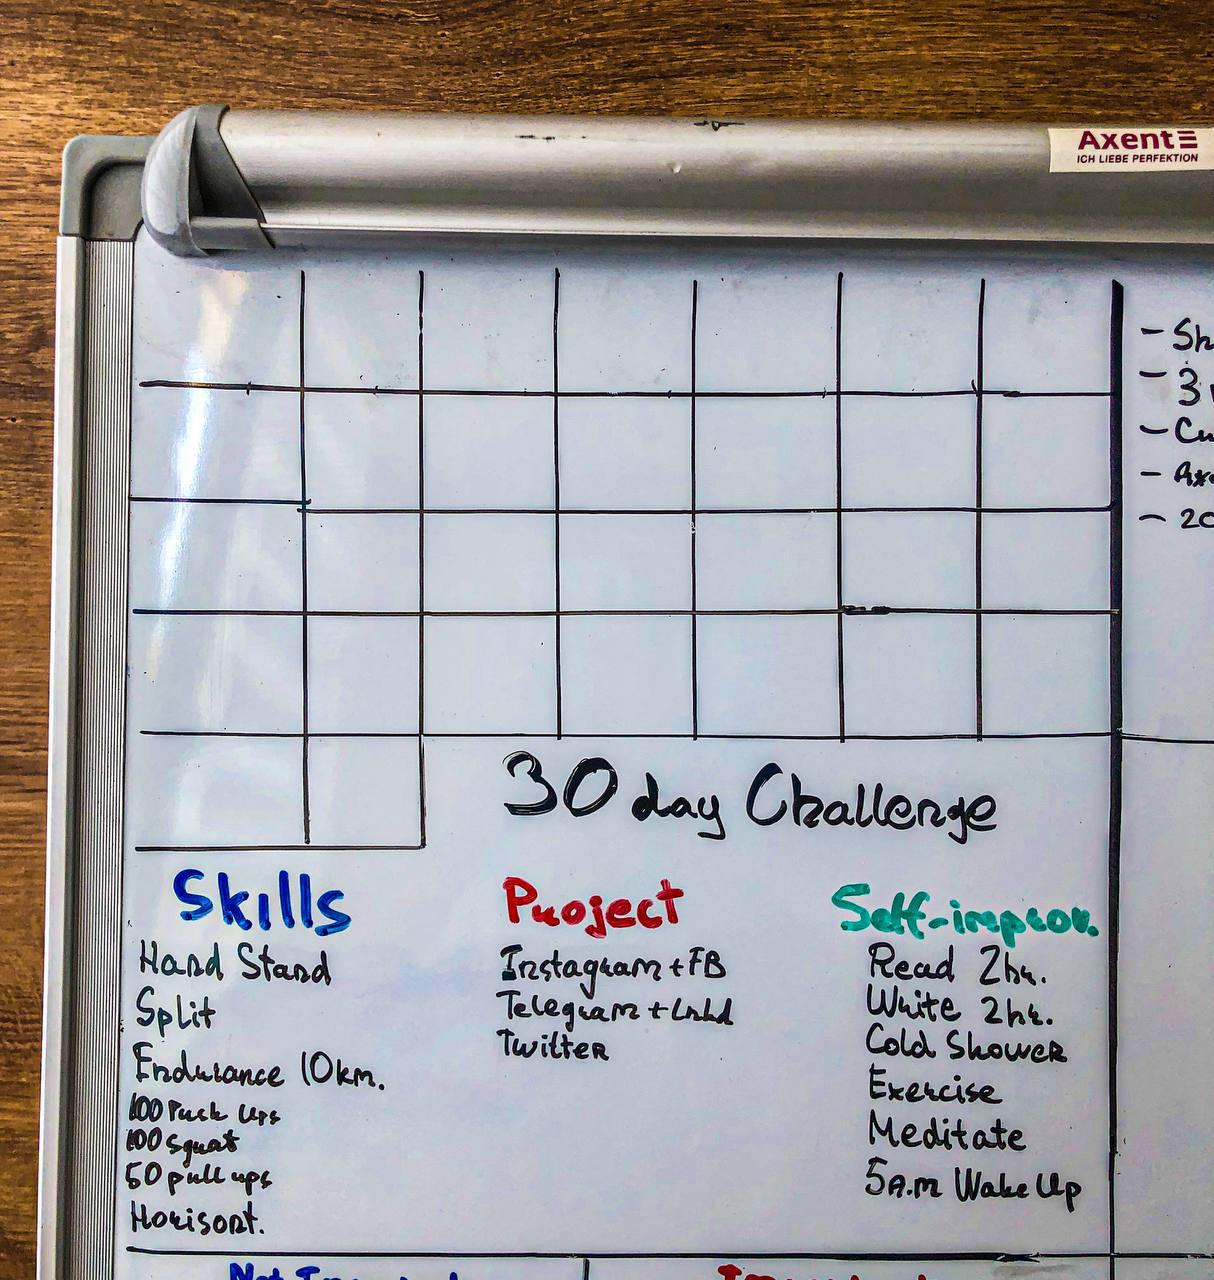 Axent
ICH LIEBE PERFEKTION
- Sh
- 3
- Cu
- Ax
- 20
30 day Challenge
Skills
Hand Stand
Split
Endurance 10km.
100 Push Ups
100 squat
50 pull ups
Horisont.
Project
Instagram + FB
Telegram + Lnkd
Twitter
Self-improv.
Read 2hr.
Write 2hr.
Cold Shower
Exercise
Meditate
5 A.M Wake Up